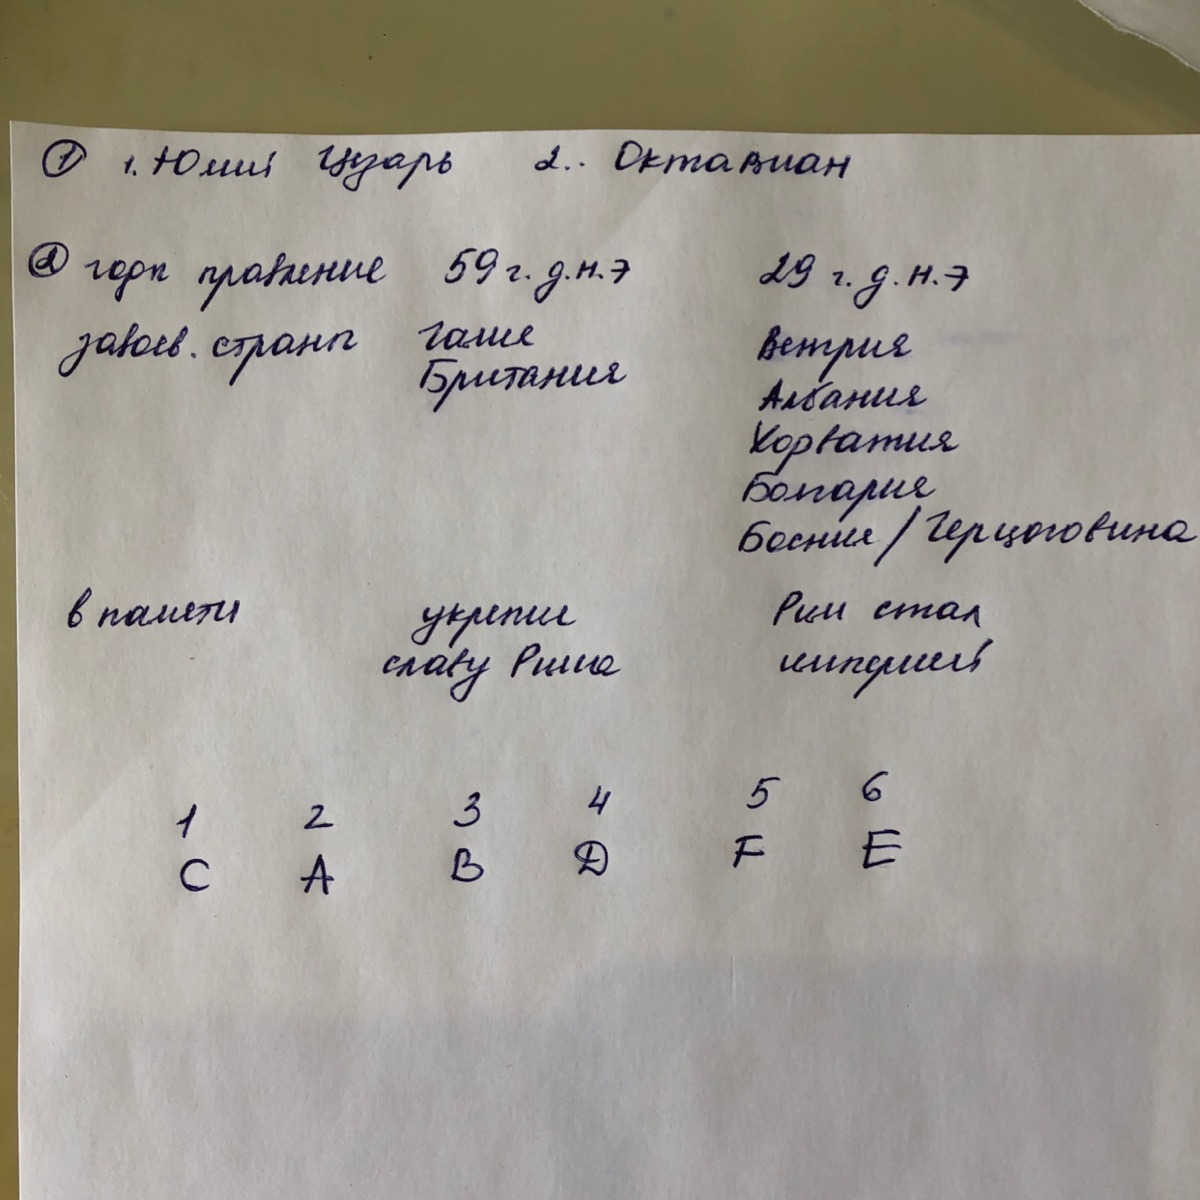 ① 1. Юлий Цезарь 2.. Октавиан
② годы правление 59 г. д.н.э 29 г. д.н.э
завоев. страны Галие Ветрия
Британия Албания
Хорватия
Болгария
Босние / Герцоговина
в памяти укрепил Рим стал
славу Рима империей
1 2 3 4 5 6
C A B D F E